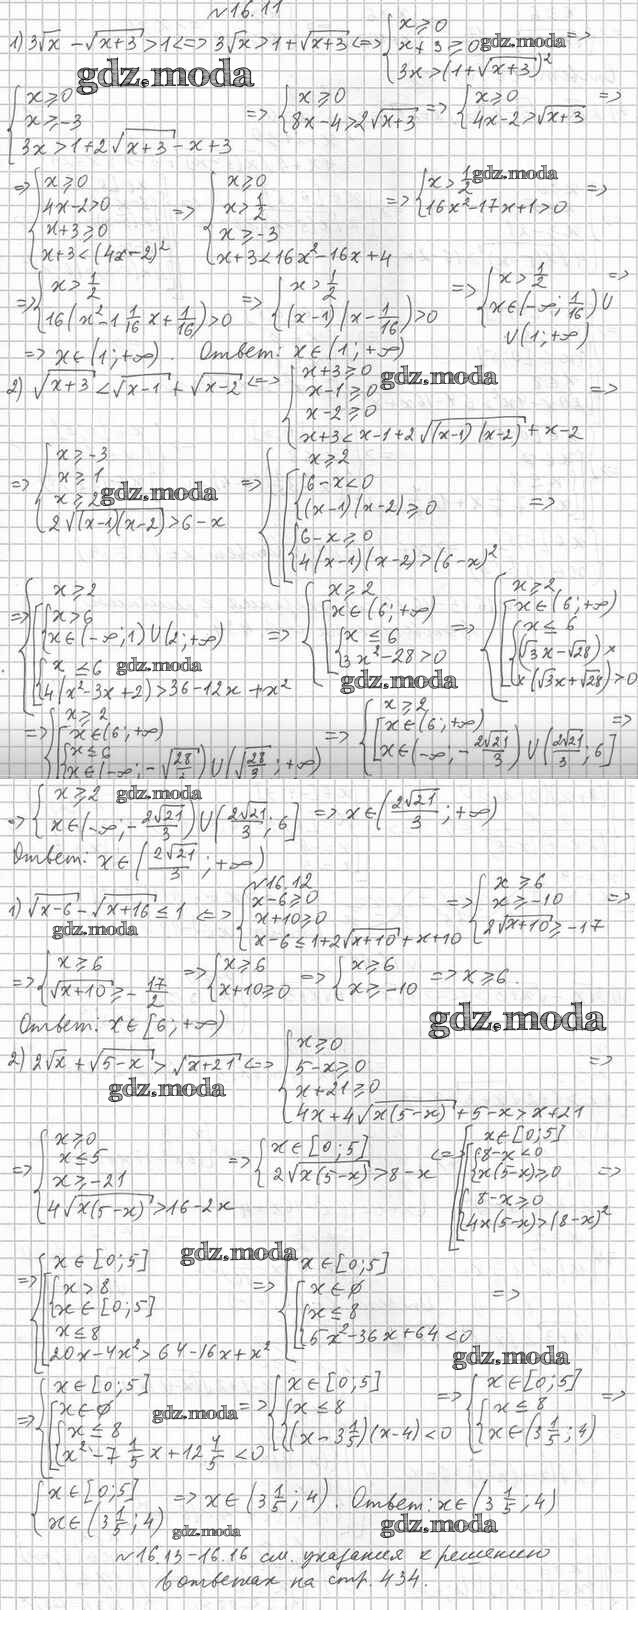 №16.11
1) 3√x - √(x+3) > 1 <=> 3√x > 1 + √(x+3) <=> { x ≥ 0; x+3 ≥ 0; 3x > (1+√(x+3))² =>
gdz.moda
gdz.moda
{ x ≥ 0; x ≥ -3; 3x > 1+2√(x+3) - x+3 => { x ≥ 0; 8x-4 > 2√(x+3) => { x ≥ 0; 4x-2 > √(x+3) =>
=> { x ≥ 0; 4x-2 > 0; x+3 ≥ 0; x+3 < (4x-2)² => { x ≥ 0; x > 1/2; x ≥ -3; x+3 < 16x²-16x+4 => { x > 1/2; 16x²-17x+1 > 0 =>
gdz.moda
=> { x > 1/2; 16(x²-1 1/16 x + 1/16) > 0 => { x > 1/2; (x-1)(x-1/16) > 0 => { x > 1/2; x ∈ (-∞; 1/16) ∪ ∪ (1; +∞) =>
=> x ∈ (1; +∞). Ответ: x ∈ (1; +∞)
2) √(x+3) < √(x-1) + √(x-2) <=> { x+3 ≥ 0; x-1 ≥ 0; x-2 ≥ 0; x+3 < x-1+2√((x-1)(x-2)) + x-2 =>
gdz.moda
=> { x ≥ -3; x ≥ 1; x ≥ 2; 2√((x-1)(x-2)) > 6-x => { x ≥ 2; [ { 6-x < 0; (x-1)(x-2) ≥ 0; { 6-x ≥ 0; 4(x-1)(x-2) > (6-x)² =>
gdz.moda
=> { x ≥ 2; [ { x > 6; x ∈ (-∞; 1) ∪ (2; +∞); { x ≤ 6; 4(x²-3x+2) > 36-12x+x² => { x ≥ 2; [ x ∈ (6; +∞); { x ≤ 6; 3x²-28 > 0 => { x ≥ 2; [ x ∈ (6; +∞); { x ≤ 6; (√3x-√28) × ×(√3x+√28) > 0
gdz.moda
gdz.moda
=> { x ≥ 2; [ x ∈ (6; +∞); { x ≤ 6; x ∈ (-∞; -√(28/3)) ∪ (√(28/3); +∞) => { x ≥ 2; [ x ∈ (6; +∞); x ∈ (-∞; -2√21/3) ∪ (2√21/3; 6] =>
=> { x ≥ 2; x ∈ (-∞; -2√21/3) ∪ (2√21/3; 6] => x ∈ (2√21/3; +∞)
gdz.moda
Ответ: x ∈ (2√21/3; +∞)
№16.12
1) √(x-6) - √(x+16) ≤ 1 <=> { x-6 ≥ 0; x+10 ≥ 0; x-6 ≤ 1+2√(x+10) + x+10 => { x ≥ 6; x ≥ -10; 2√(x+10) ≥ -17 =>
gdz.moda
=> { x ≥ 6; √(x+10) ≥ -17/2 => { x ≥ 6; x+10 ≥ 0 => { x ≥ 6; x ≥ -10 => x ≥ 6.
Ответ: x ∈ [6; +∞)
gdz.moda
2) 2√x + √(5-x) > √(x+21) <=> { x ≥ 0; 5-x ≥ 0; x+21 ≥ 0; 4x+4√(x(5-x)) + 5-x > x+21 =>
gdz.moda
=> { x ≥ 0; x ≤ 5; x ≥ -21; 4√(x(5-x)) > 16-2x => { x ∈ [0; 5]; 2√(x(5-x)) > 8-x <=> { x ∈ [0; 5]; [ { 8-x < 0; x(5-x) ≥ 0; { 8-x ≥ 0; 4x(5-x) > (8-x)² =>
gdz.moda
=> { x ∈ [0; 5]; [ { x > 8; x ∈ [0; 5]; { x ≤ 8; 20x-4x² > 64-16x+x² => { x ∈ [0; 5]; [ x ∈ ∅; { x ≤ 8; 5x²-36x+64 < 0 =>
gdz.moda
=> { x ∈ [0; 5]; [ x ∈ ∅; { x ≤ 8; x²-7 1/5 x+12 4/5 < 0 => { x ∈ [0; 5]; { x ≤ 8; (x-3 1/5)(x-4) < 0 => { x ∈ [0; 5]; { x ≤ 8; x ∈ (3 1/5; 4) =>
gdz.moda
{ x ∈ [0; 5]; x ∈ (3 1/5; 4) => x ∈ (3 1/5; 4). Ответ: x ∈ (3 1/5; 4)
gdz.moda
gdz.moda
№16.13-16.16 см. указания к решению
в ответах на стр. 434.